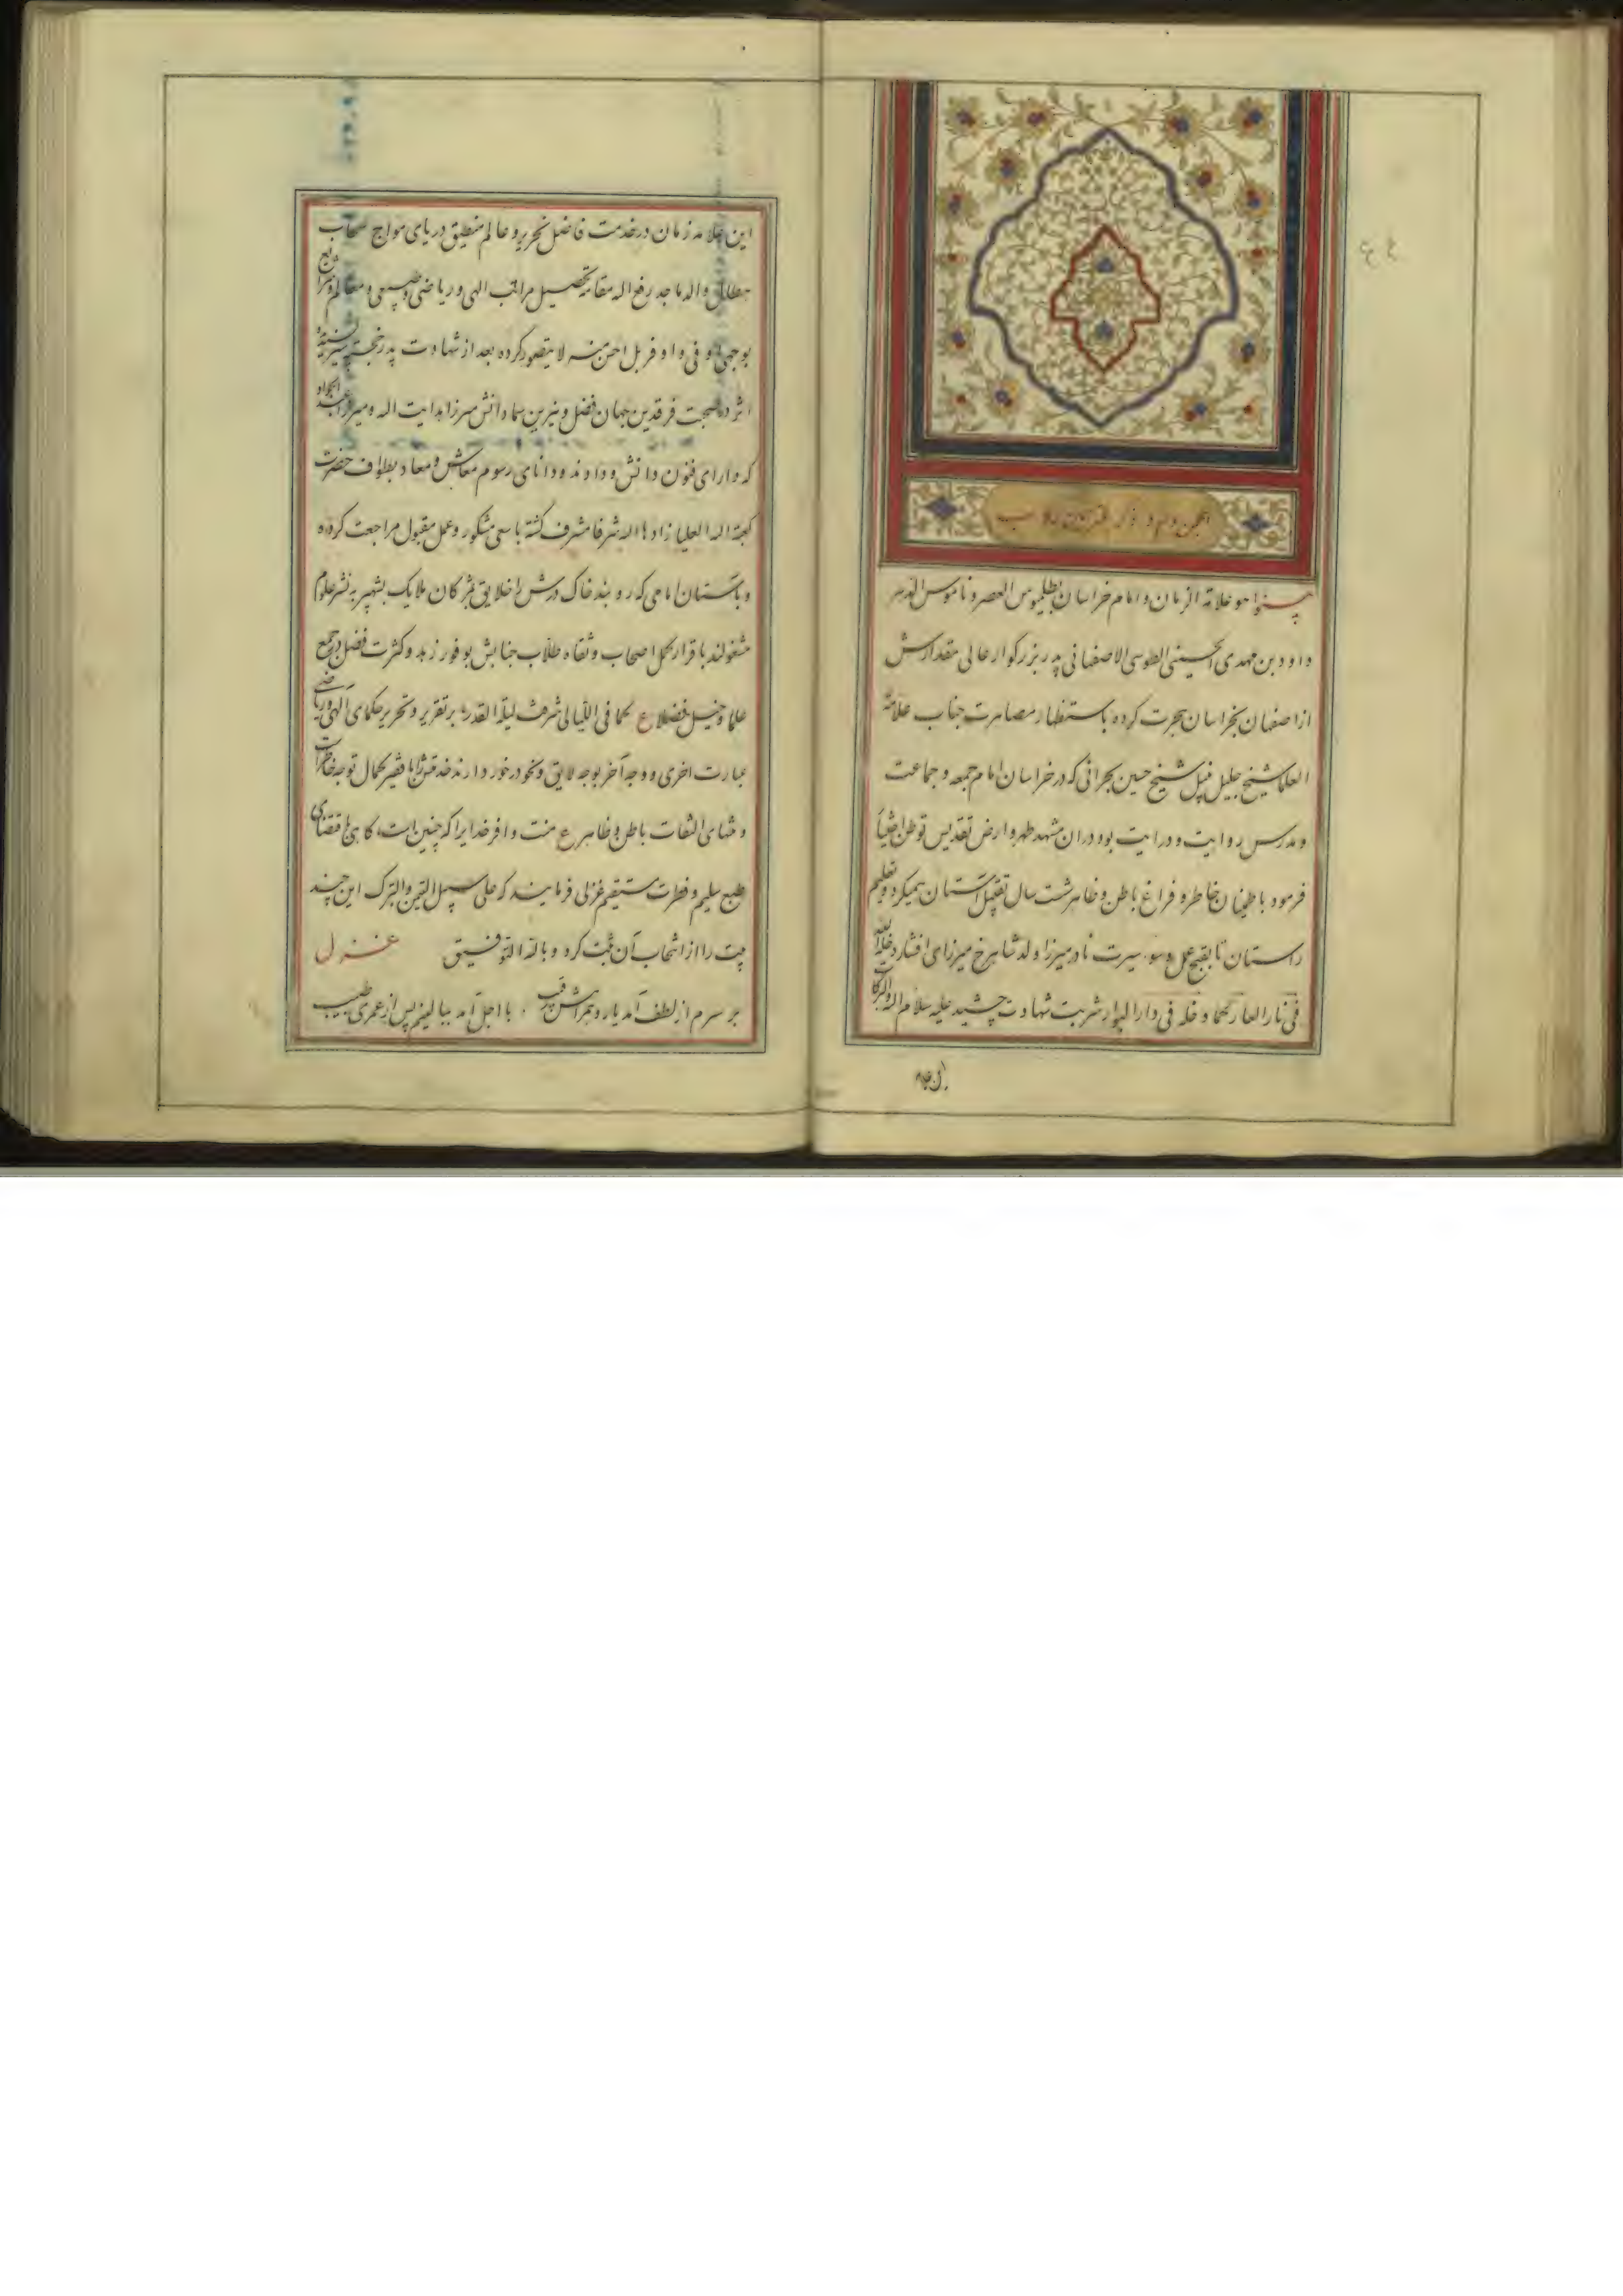 ۶۴
انجمن دوم در ذکر
هو علامة الزمان و امام خراسان بطلمیوس العصر و ناموس الدهر
داود بن مهدی الحسینی الطوسی الاصفهانی پدر بزرگوار عالی مقدارش
از اصفهان بخراسان هجرت کرده باستظهار مصاهرت جناب علامة
العلما شیخ جلیل نبیل شیخ حسین بحرانی که در خراسان امام جمعه و جماعت
و مدرس روایت و درایت بود در ان مشهد مطهر و ارض تقدیس توطن اختیار
فرمود باطمینان خاطر و فراغ باطن و ظاهر شصت سال تقبیل آستان همیکرد و تعلیم
راستان تا بقبح عمل و سوء سیرت نادر میرزا ولد شاهرخ میرزای افشار
فی نار العار کهما و خلد فی دار البوار شربت شهادت چشید علیه سلام الله و البرکات
این علامه
این علامه زمان در خدمت فاضل نحریر و عالم منطیق دریای مواج سحاب
هطال والد ماجد رفع الله مقامه تحصیل مراتب الهی و ریاضی و طبیعی و معالم و شرایع
بوجهی وفی و اوفر بل احسن منه لا یتصور کرده بعد از شهادت پدر خجسته سیر
اثر در صحبت فرقدین جهان فضل و نیرین سماء دانش میرزا هدایت الله و میرزا عبد الجواد
که دارای فنون دانش و دادند و دانای رسوم معاش و معاد بطواف حضرت
کعبة الله العلیا زادها الله شرفا مشرف گشته با سعی مشکور و عمل مقبول مراجعت کرده
و باستان امامی که روبند خاک درش را خلایق بمژگان ملایک بشهپر به نشر علوم
مشغولند باقرار کمل اصحاب و ثقاه طلاب جنابش بوفور زهد و کثرت فضل در جمع
علما و خیل فضلا ع کما فی اللیالی شرفت لیلة القدر بر تقریر و تحریر حکمای الهی و ریاضی
عبارت اخری و وجه آخر بوجه لایق و نحو در خور دارند خدمتش را با فقیر کمال توجه خاطر است
و منتهای التفات باطن و ظاهر ع منت وافر خدایرا که چنین است، گاهی باقتضای
طبع سلیم و فطرت مستقیم غزلی فرمایند که علی سبیل التیمن و التبرک این چند
بیت را از انتخاب آن ثبت کرد و بالله التوفیق غزل
بر سرم از لطف آمد یار و همراهش رقیب با اجل آمد ببالینم پس از عمری طبیب